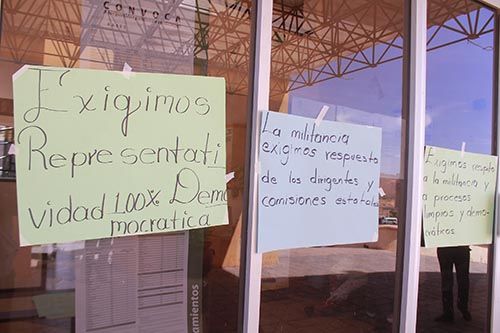 CONVOCA
Exigimos
Representati
vidad 100% Demo
mocratica
La militancia
exigimos respuesta
de los dirigentes y
comisiones estatales
Exigimos respeto
a la militancia y
a procesos
limpios y demo-
cráticos.